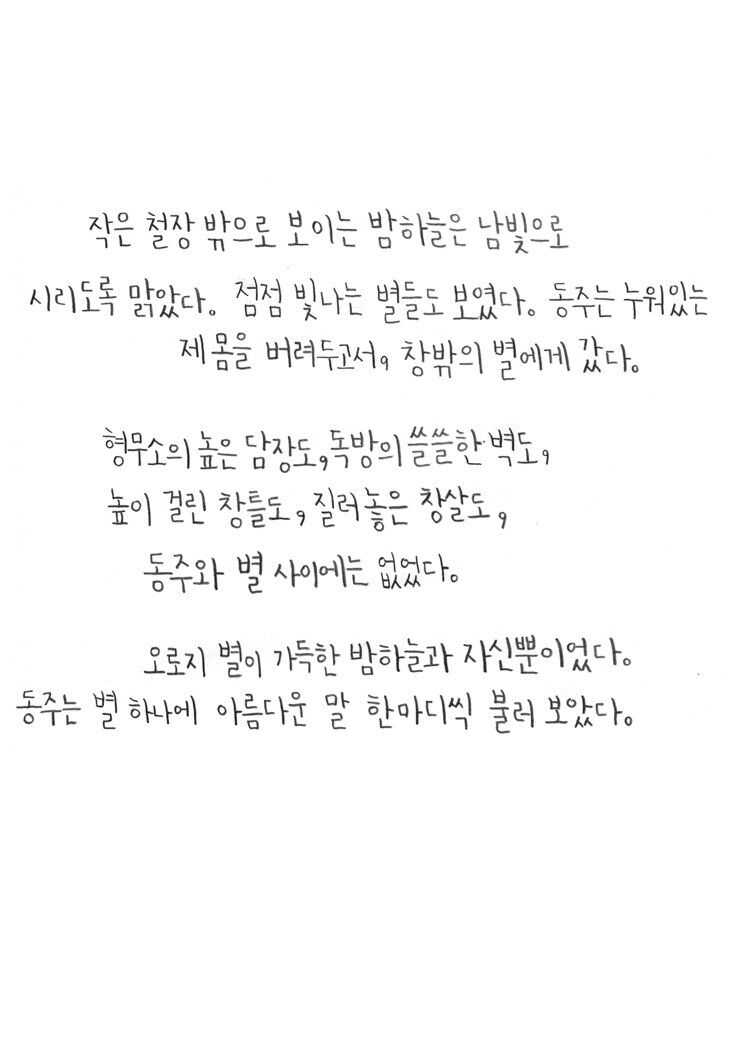 작은 철장 밖으로 보이는 밤하늘은 남빛으로
시리도록 맑았다. 점점 빛나는 별들도 보였다. 동주는 누워있는
제 몸을 버려두고서, 창밖의 별에게 갔다.
형무소의 높은 담장도, 독방의 쓸쓸한 벽도,
높이 걸린 창틀도, 질러놓은 창살도,
동주와 별 사이에는 없었다.
오로지 별이 가득한 밤하늘과 자신뿐이었다.
동주는 별 하나에 아름다운 말 한마디씩 불러 보았다.